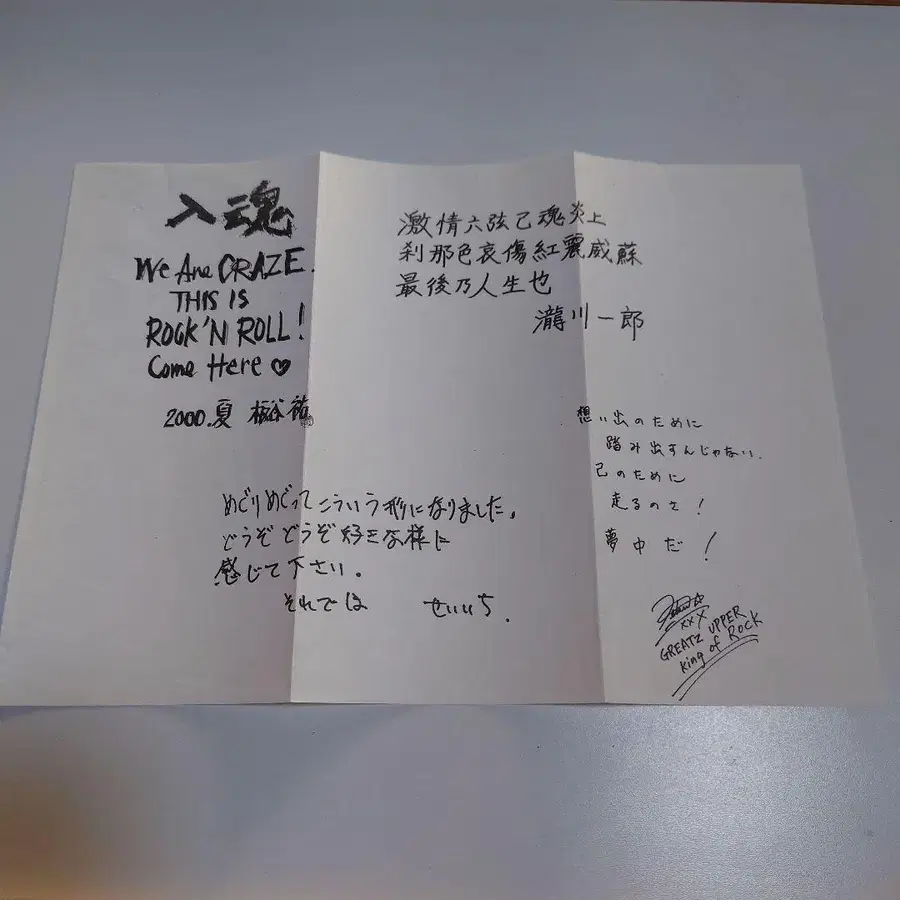 入魂
We Are CRAZE.
THIS IS
ROCK'N ROLL!
Come Here ♡
2000.夏 板谷祐
激情六弦己魂炎上
刹那色哀傷紅麗威蘇
最後乃人生也
瀧川一郎
想い出のために
踏み出すんじゃない.
己のために
走るのさ!
夢中だ!
めぐりめぐってこういう形になりました。
どうぞどうぞ好きな様に
感じて下さい。
それでは せいいち.
XXX
GREATZ UPPER
King of Rock